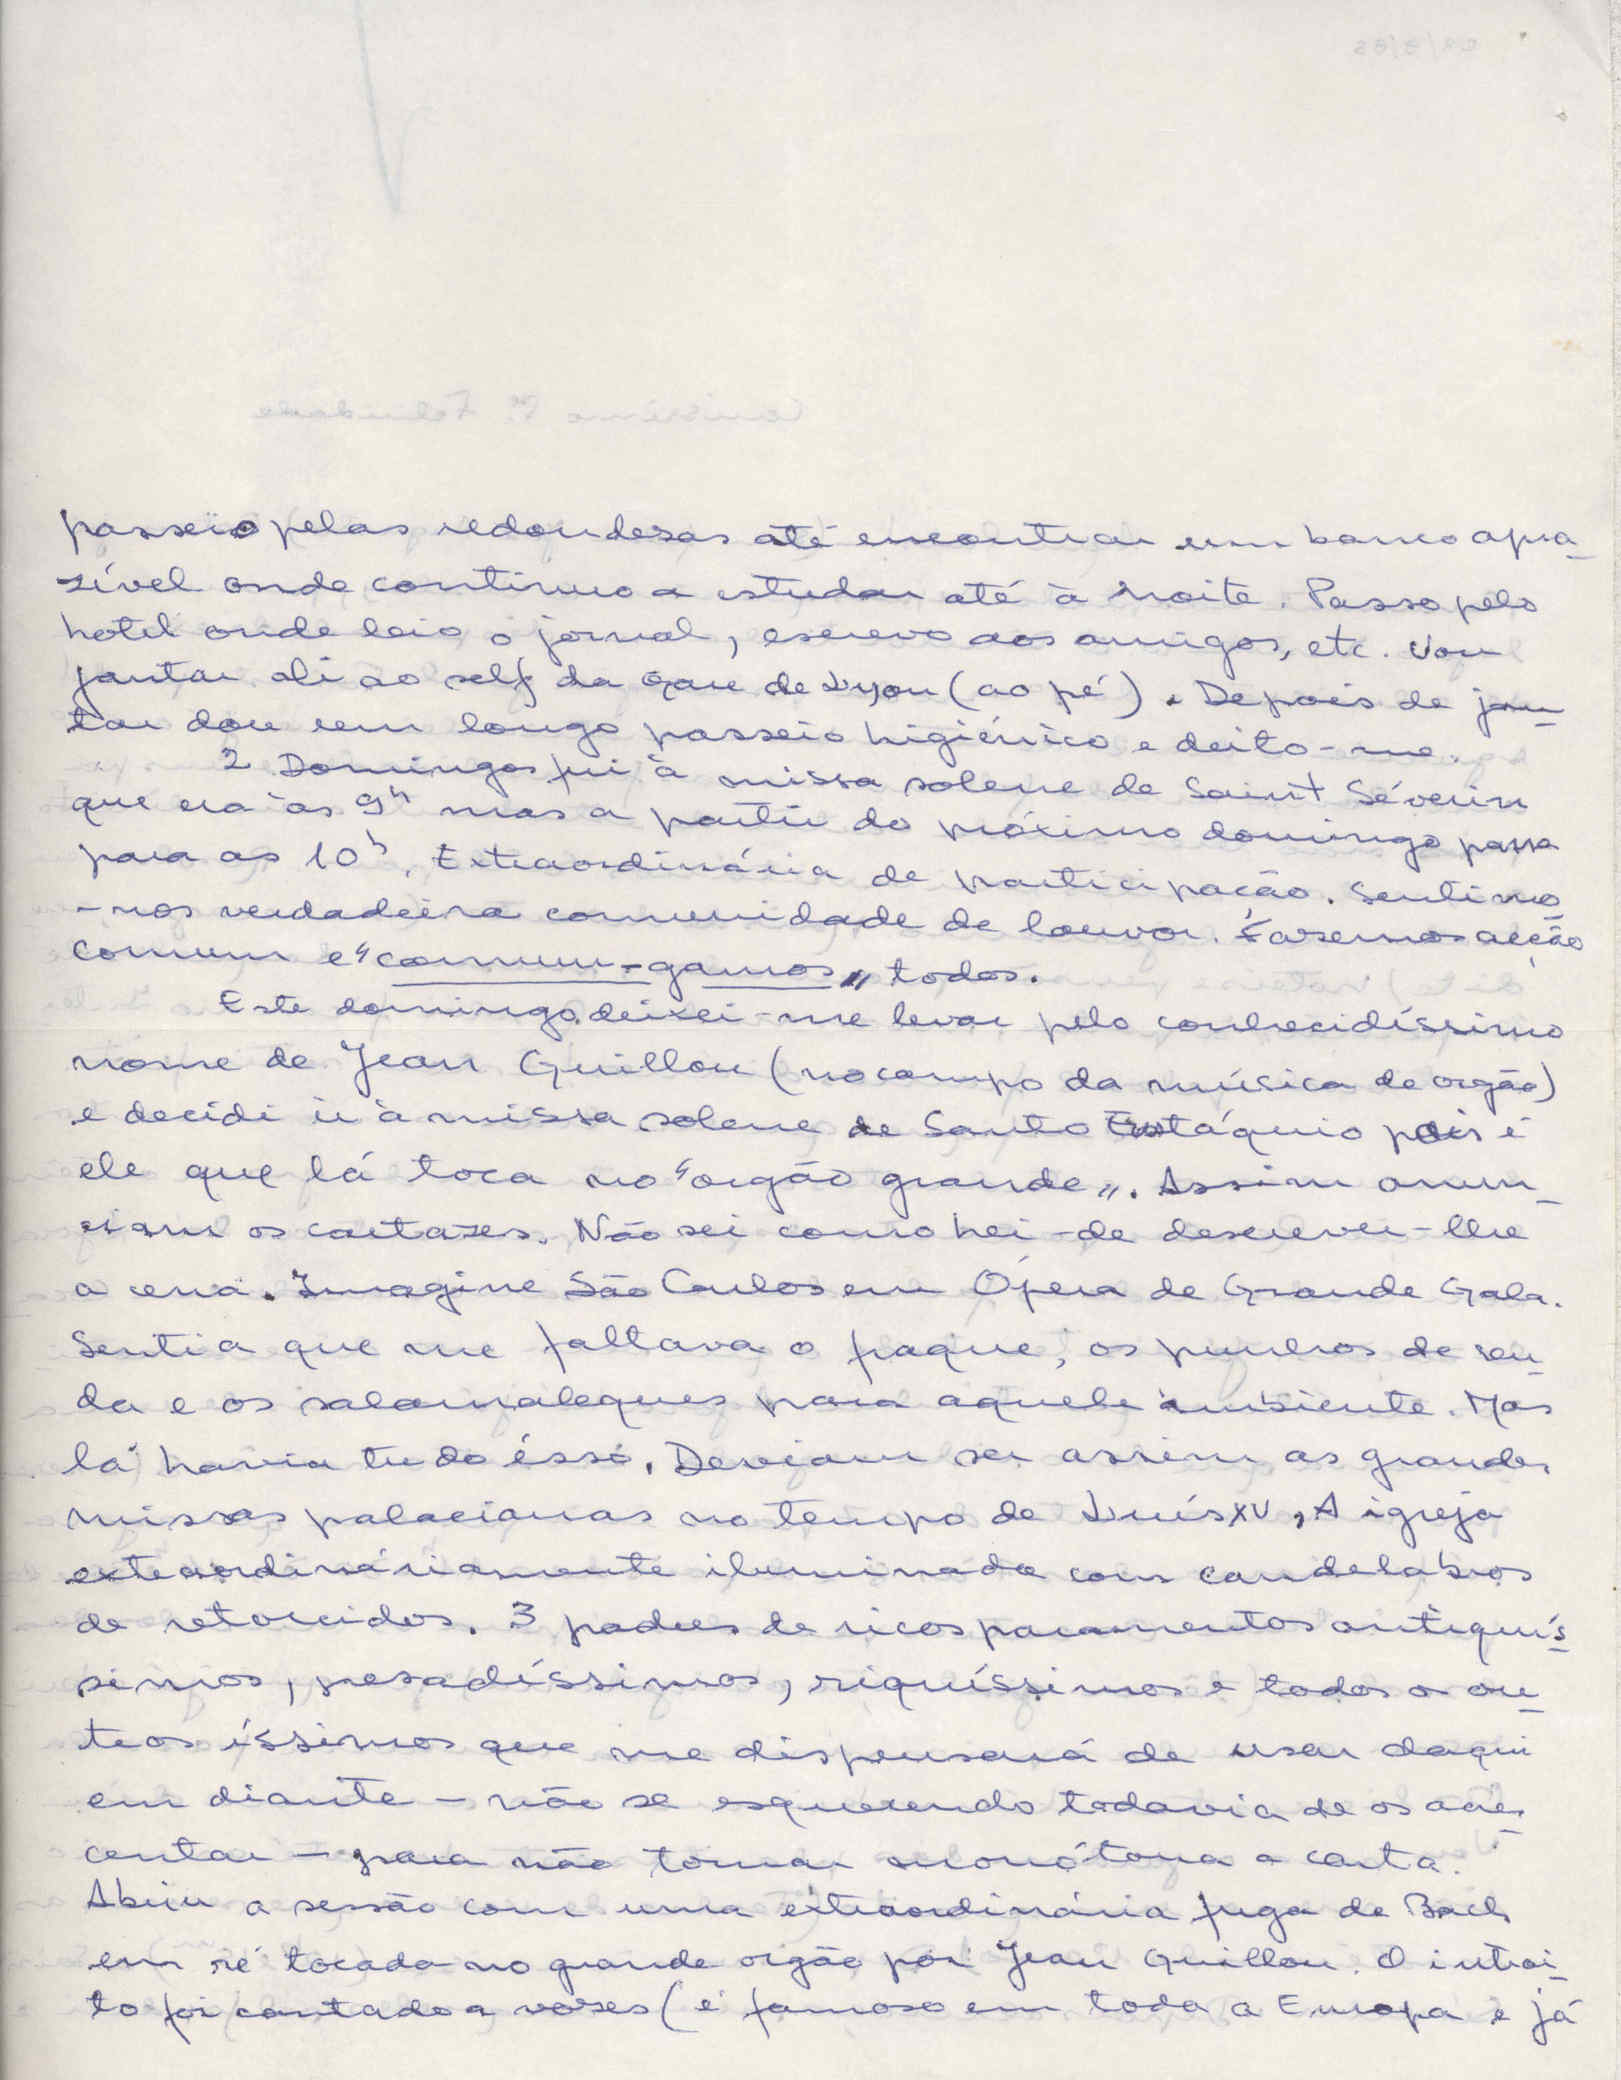 passeio pelas redondezas até encontrar um banco apra-
zível onde continuo a estudar até à noite. Passo pelo
hotel onde leio o jornal, escrevo aos amigos, etc. Vou
jantar ali ao self da Gare de Lyon (ao pé). Depois de jan-
tar dou um longo passeio higiénico e deito-me.
2 Domingos fui à missa solene de Saint Séverin
que era às 9h mas a partir do próximo domingo passa
para as 10h. Extraordinária de participação. Sentimo
-nos verdadeira comunidade de louvor. Fazemos acção
comum e "comum-gamos" todos.
Este domingo deixei-me levar pelo conhecidíssimo
nome de Jean Guillou (no campo da música de orgão)
e decidi ir à missa solene de Santo Eustáquio pois é
ele que lá toca no "orgão grande". Assim anun-
ciam os cartazes. Não sei como hei-de descrever-lhe
a cena. Imagine São Carlos em Ópera de Grande Gala.
Sentia que me faltava o fraque, os punhos de ren-
da e os salamaleques para aquele ambiente. Mas
lá havia tudo ésso. Deviam ser assim as grandes
missas palacianas no tempo de Luís XV. A igreja
extraordináriamente iluminada com candelabros
de retorcidos. 3 padres de ricos paramentos antiquís-
simos, pesadíssimos, riquíssimos e todos os ou-
tros íssimos que me dispensará de usar daqui
em diante - não se esquecendo todavia de os acres-
centar - para não tornar monótona a carta.
Abriu a sessão com uma extraordinária fuga de Bach
em ré tocada no grande orgão por Jean Guillou. O introi-
to foi cantado a vozes (é famoso em toda a Europa e já